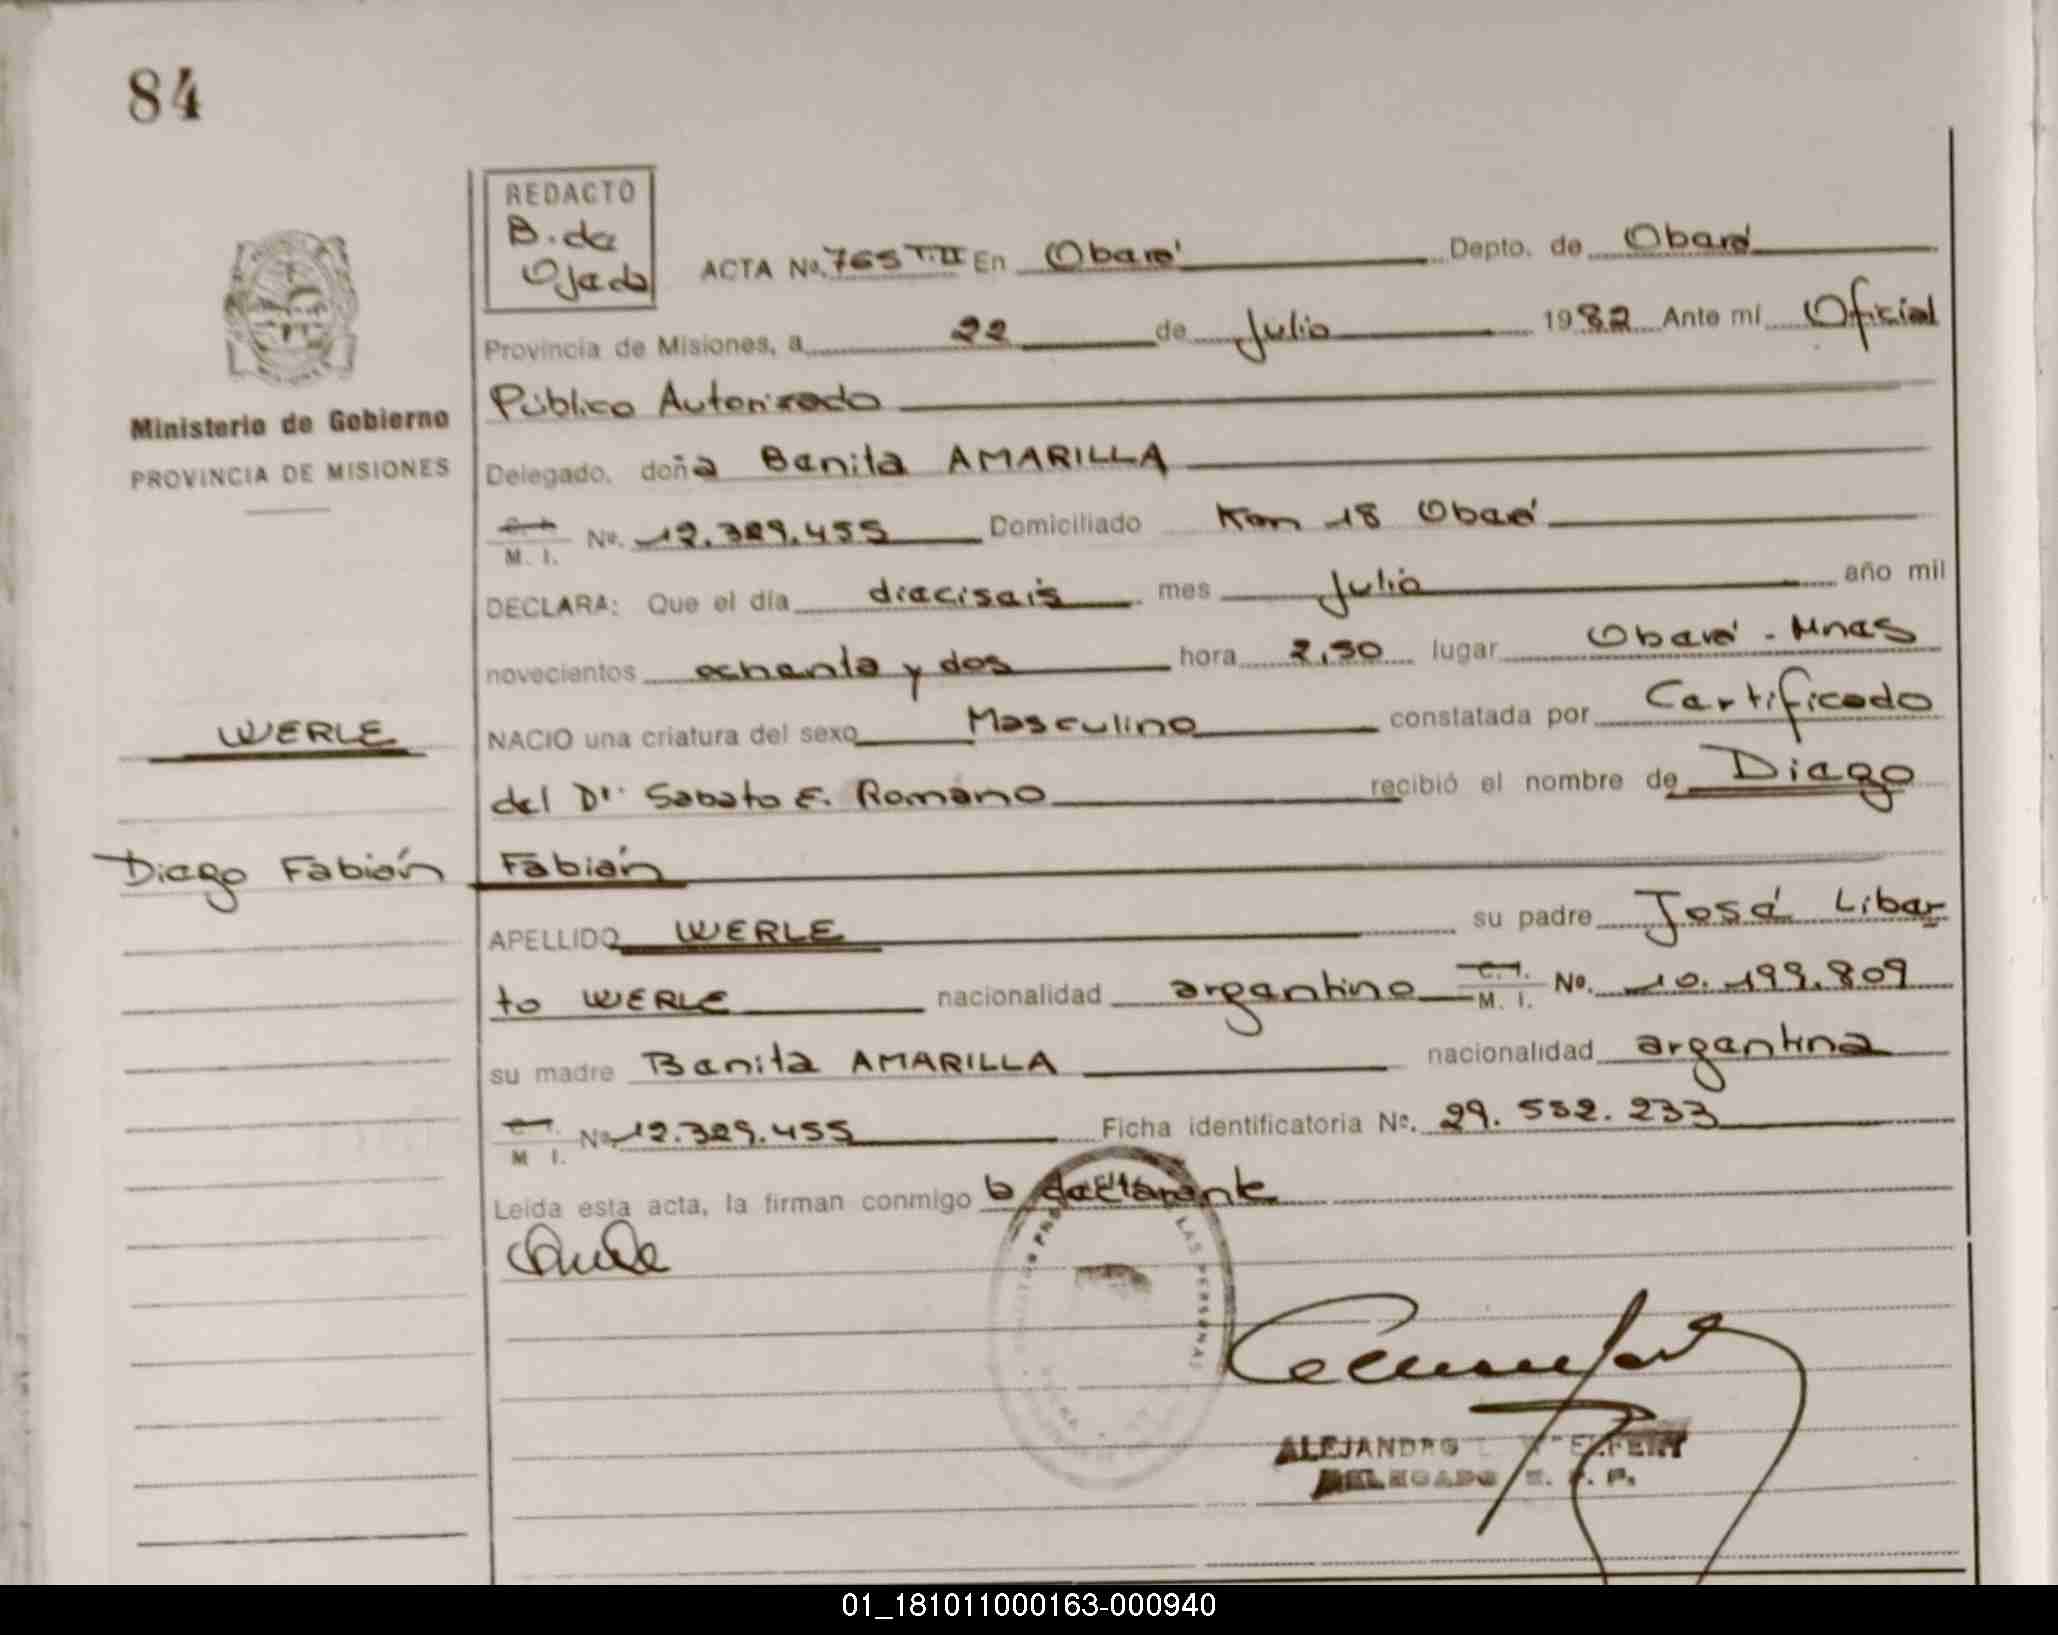 84
REDACTO
B. de
Ojeda
ACTA No. 765 T.II En Oberá Depto. de Oberá
Provincia de Misiones, a 22 de Julio 1982 Ante mí Oficial
Público Autorizado
Ministerio de Gobierno
PROVINCIA DE MISIONES
Delegado, doña Benita AMARILLA
C. I. M. I. No. 12.329.455 Domiciliado Km 18 Oberá
DECLARA: Que el día dieciseis mes Julio año mil
novecientos ochenta y dos hora 2,30 lugar Oberá - Mnes
WERLE
NACIO una criatura del sexo Masculino constatada por Certificado
del Dr. Sabato E. Romano recibió el nombre de Diego
Diego Fabián
Fabián
APELLIDO WERLE su padre José Liber
to WERLE nacionalidad argentino C. I. M. I. No. 10.199.809
su madre Benita AMARILLA nacionalidad argentina
C. I. M. I. No. 12.329.455 Ficha identificatoria No. 29.582.233
Leida esta acta, la firman conmigo la declarante
LAS PERSONAS
ALEJANDRO
DELEGADO
01_181011000163-000940